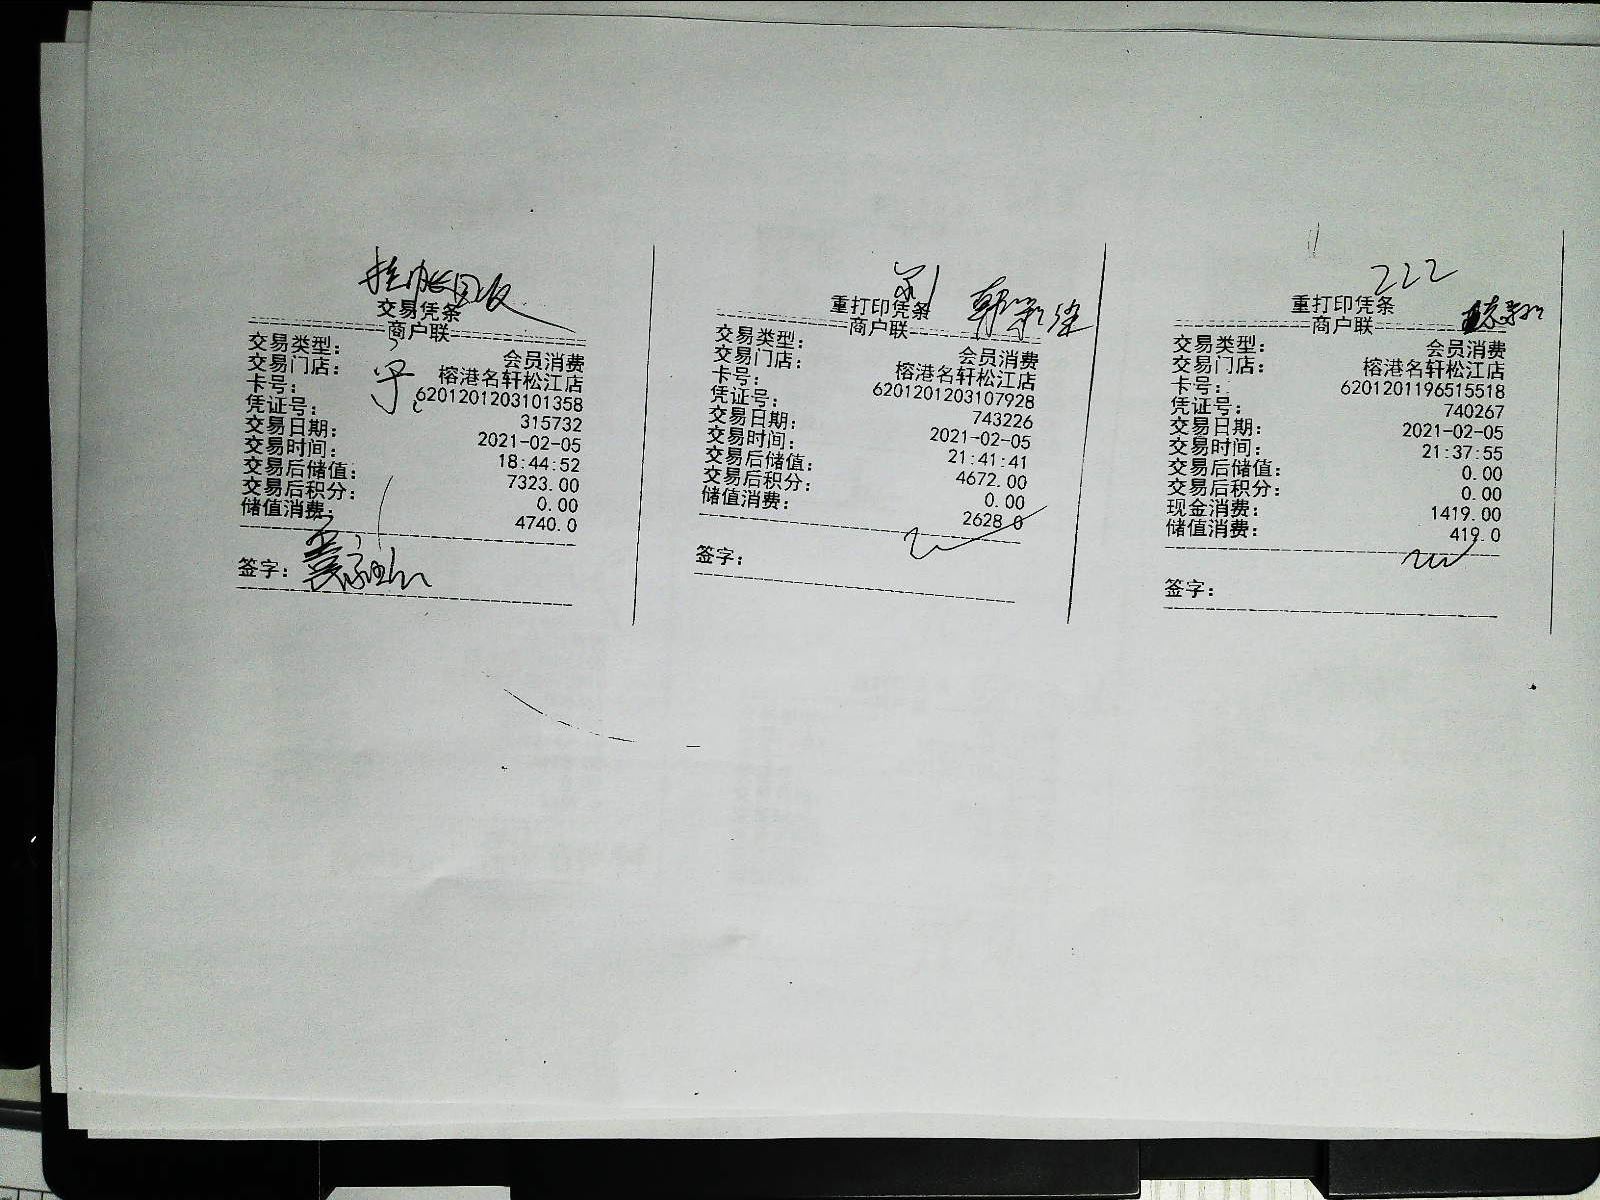 挂帐回收
交易凭条
商户联
交易类型：
会员消费
交易门店：
榕港名轩松江店
卡号：
6201201203101358
凭证号：
315732
交易日期：
2021-02-05
交易时间：
18:44:52
交易后储值：
7323.00
交易后积分：
0.00
储值消费：
4740.0
签字：
重打印凭条
商户联
交易类型：
会员消费
交易门店：
榕港名轩松江店
卡号：
6201201203107928
凭证号：
743226
交易日期：
2021-02-05
交易时间：
21:41:41
交易后储值：
4672.00
交易后积分：
0.00
储值消费：
2628.0
签字：
222
重打印凭条
商户联
交易类型：
会员消费
交易门店：
榕港名轩松江店
卡号：
6201201196515518
凭证号：
740267
交易日期：
2021-02-05
交易时间：
21:37:55
交易后储值：
0.00
交易后积分：
0.00
现金消费：
1419.00
储值消费：
419.0
签字：